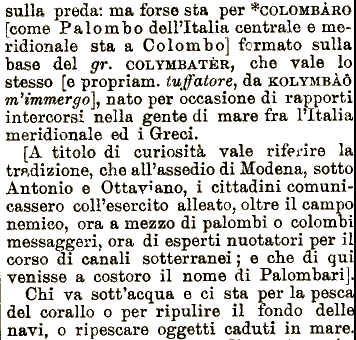 sulla preda: ma forse sta per *COLOMBÀRO
[come Palombo dell'Italia centrale e me-
ridionale sta a Colombo] formato sulla
base del gr. COLYMBATÈR, che vale lo
stesso [e propriam. tuffatore, da KOLYMBÀÔ
m'immergo], nato per occasione di rapporti
intercorsi nella gente di mare fra l'Italia
meridionale ed i Greci.
[A titolo di curiosità vale riferire la
tradizione, che all'assedio di Modena, sotto
Antonio e Ottaviano, i cittadini comuni-
cassero coll'esercito alleato, oltre il campo
nemico, ora a mezzo di palombi o colombi
messaggeri, ora di esperti nuotatori per il
corso di canali sotterranei; e che di qui
venisse a costoro il nome di Palombari].
Chi va sott'acqua e ci sta per la pesca
del corallo o per ripulire il fondo delle
navi, o ripescare oggetti caduti in mare.